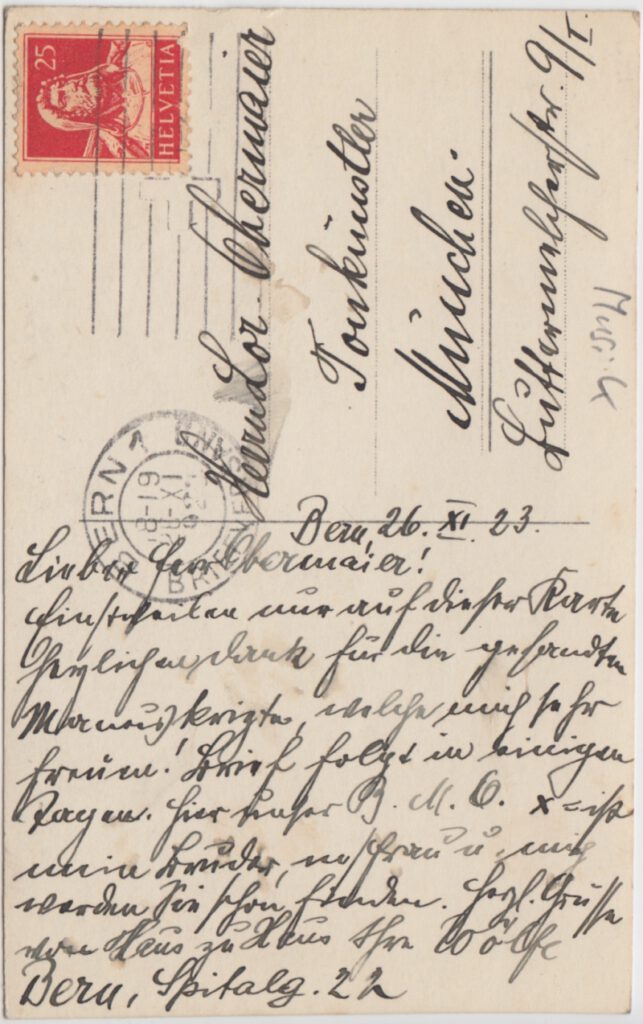 25
HELVETIA
BERN 1
18-19
BRIEFVERSAND
Herrn Lor. Obermaier
Tonkünstler
München.
9/I.
Musik
Bern, 26. XI. 23.
Lieber Herr Obermaier!
Einstweilen nur auf dieser Karte
herzlichen dank für die gesandten
Manuskripte, welche mich sehr
freuen! Brief folgt in einigen
Tagen. Hier unser B. M. O. x = ist
mein Bruder, m/ frau u. mich
werden Sie schon finden. Herzl. Grüsse
von Haus zu Haus Ihr
Bern, Spitalg. 22